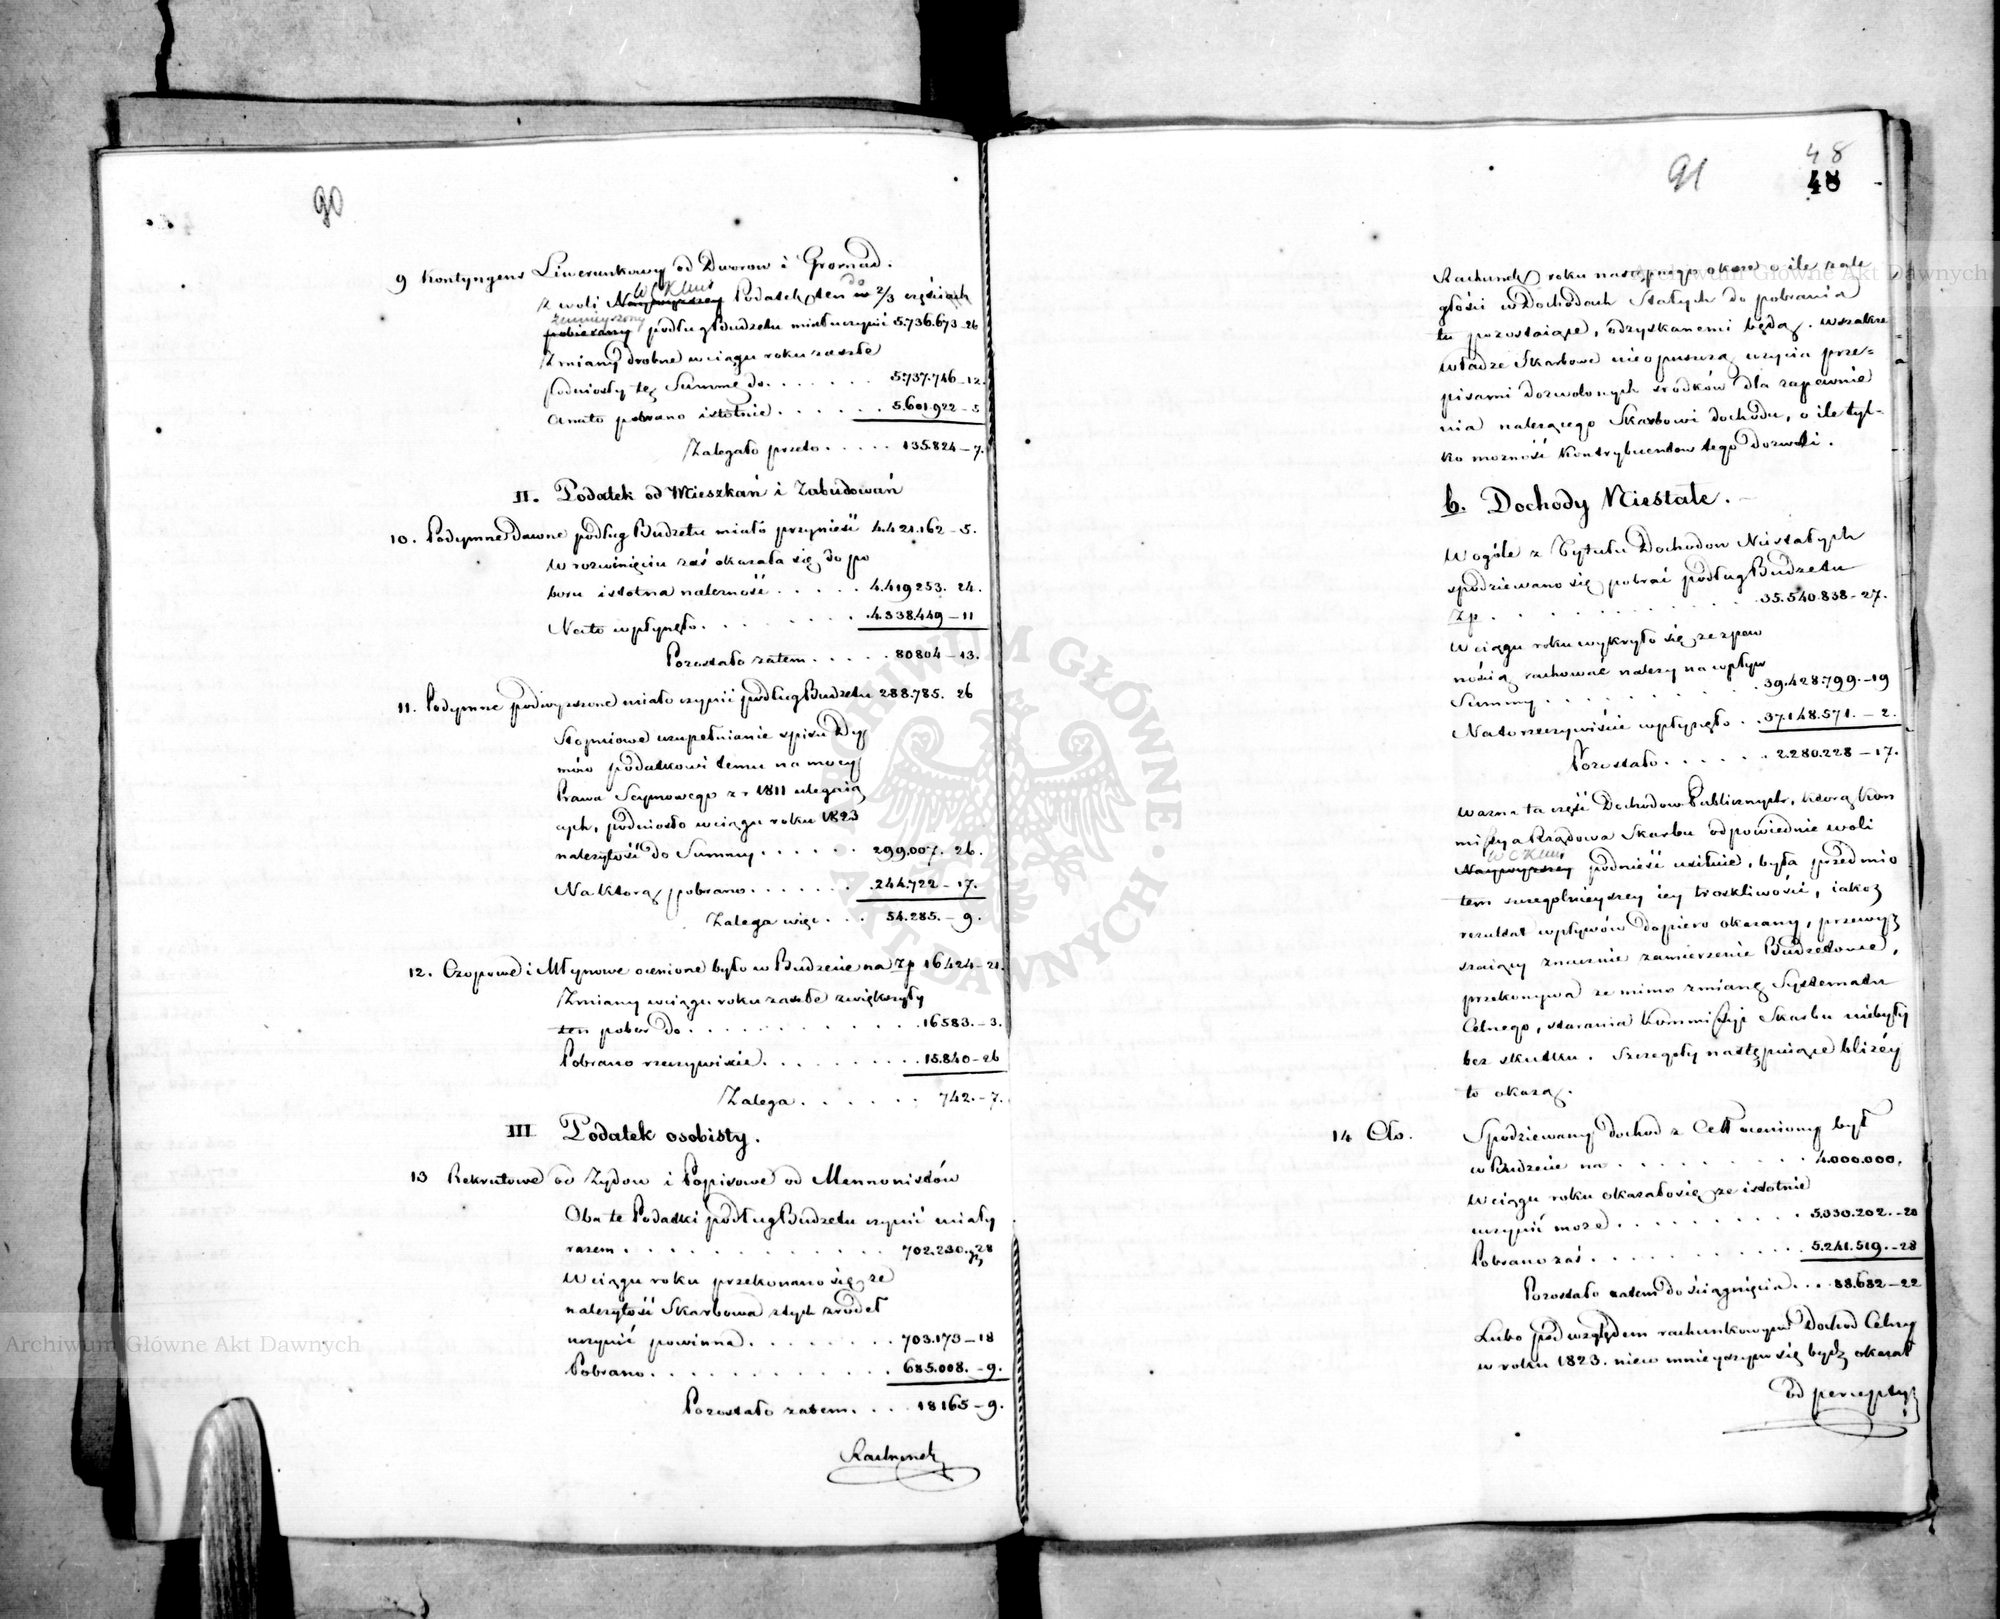 90
9 Kontyngens Liwerunkowy od Dworow i Gromad.
W C K Mci do
Z woli Naywyższey Podatek ten w 2/3 częściach
zmnieyszony
pobierany podług Budżetu miał uczynić 5.736.673-26
Zmiany drobne w ciągu roku zaszłe
podniosły tę Summę do . . . . . . 5.737.746-12.
a na to pobrano istotnie . . . . . . 5.601.922-5
Zalegało przeto . . . . . 135.824-7.
II. Podatek od Mieszkań i Zabudowań
10. Podymne Dawne podług Budżetu miało przynieść 4.421.162-5.
W rozwinięciu zaś okazała się do po
boru istotna należność . . . . . 4.419253. 24.
Na to wpłynęło . . . . . . . 4.338.449-11
Pozostało zatem . . . . . 80804-13.
11. Podymne podwyższone miało uczynić podług Budżetu 288.785. 26
Stopniowe uzupełnianie spisu Dy
mów podatkowi temu na mocy
Prawa Seymowego z r 1811 ulegaią
cych, podniosło w ciągu roku 1823
należytość do Summy . . . . . . 299.007. 26.
Na którą pobrano . . . . . . . 244.722-17.
Zalega więc . . . 54.285.-9.
12. Czopowe i Młynowe ocenione było w Budżecie na Zp 16424-21.
Zmiany w ciągu roku zaszłe zwiększyły
ten pobór do . . . . . . . . . . . 16583.-3.
Pobrano rzeczywiście . . . . . . . . 15.840-26
Zalega . . . . . . 742.-7.
III Podatek osobisty.
13 Rekrutowe od Żydow i Popisowe od Mennonistów
Oba te Podatki podług Budżetu uczynić miały
razem . . . . . . . . . . . . 702.230.-28
W ciągu roku przekonano się, że
należytość Skarbowa z tych zrodeł
uczynić powinna . . . . . . . . 703.173-18
Pobrano . . . . . . . . . . . . 685.008.-9.
Pozostało zatem . . . . 18165-9.
Rachunek
91
48
48
Rachunek roku następnego okaże o ile zale
głości w Dochodach Stałych do pobrania
tu pozostaiące, odzyskanemi będą. Wszakże
władze Skarbowe nieopuszczą użycia prze=
pisami dozwolonych srodków dla zapewnie
nia należącego Skarbowi dochodu, o ile tyl-
ko możność Kontrybuentow tego dozwoli.
b. Dochody Niestałe.
W ogóle z Tytułu Dochodow Niestałych
spodziewano się pobrać podług Budżetu
Zp . . . . . . . . . . . . 35.540.838-27.
W ciągu roku wykryło się, że z pew
nością rachować należy na wpływ
Summy . . . . . . . . . . 39.428.799.-19
Na to rzeczywiście wpłynęło . . 37.148.571.-2.
Pozostało . . . . . . 2.280.228-17.
Ważna ta część Dochodow Publicznych, którą Kom
missya Rządowa Skarbu odpowiednie woli
W C K Mci
Naywyższey podnieść usilnie, była przedmio
tem szczególnieyszey iey troskliwości, iakoż
rezultat wpływów dopiero okazany, przewyż
szaiący znacznie zamierzenie Budżetowe,
przekonywa że mimo zmianę Systematu
Celnego, starania Kommissyi Skarbu niebyły
bez skutku. Szczegóły następuiące bliżéy
to okażą.
14 Cło. Spodziewany dochod z Ceł oceniony był
w Budżecie na . . . . . . . . . . 4.000.000.
W ciągu roku okazało się, że istotnie
uczynić może . . . . . . . . . . 5.330.202.-20
Pobrano zaś . . . . . . . . . . . 5.241.519.-28
Pozostało zatem do ściągnięcia . . . 88.682-22
Lubo pod względem rachunkowym Dochod Celny
w roku 1823. nieco mnieyszym się bydź okazał
od percepty
ARCHIWUM GŁÓWNE AKT DAWNYCH
Archiwum Główne Akt Dawnych
Archiwum Główne Akt Dawnych